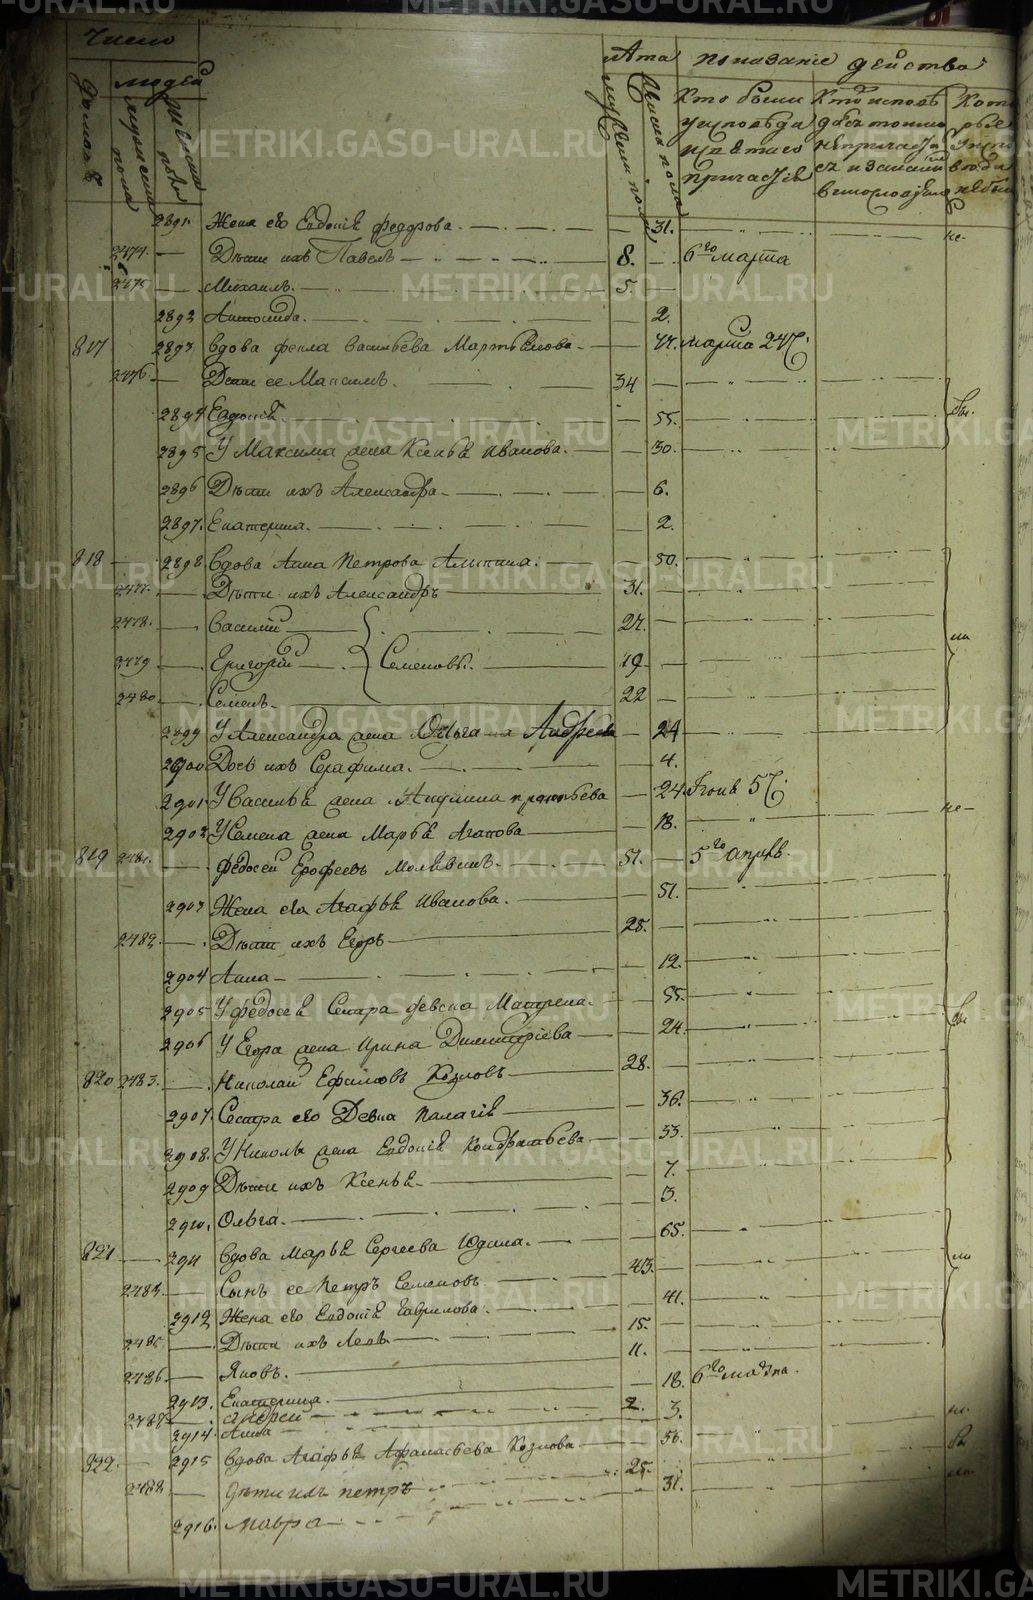 Число
Лѣта показаніе дѣйства
домовъ
людей
мужеска пола
женска пола
мужеска пола
женска пола
Кто были
у исповѣди
и святаго
причастія
Кто исповѣ
дался токмо
а не причасти
ся и за какимъ
винословіемъ
Кото
рые
у испо
вѣди
не были
2891. Жена его Евдокія федорова. 31. не
2474. Дѣти ихъ Павелъ 8. 6го марта
2475 Михаилъ. 5.
2892 2.
817 2893 вдова фекла васильева Мартьянова 77. марта
2476. Дѣти ее Максимъ. 34
2894 Евдокія 55. бы.
2895 У Максима жена Ксенья иванова. 30.
2896 Дѣти ихъ Александра 6.
2897. Екатерина. 2.
818 2898 вдова Анна Петрова 50.
2477. Дѣти ихъ Александръ 31.
2478. Василий 27.
2479 Григорий Семеновы. 19
2480 Семенъ. 22
2899 У Александра жена Ольга Андреева 24
2900 Дочь ихъ Серафима. 4.
2901 У Василья жена Акулина 24.
2902 У Семена жена Марья Агапова 18. не
819 2481. федосей Ерофеевъ 51. 5го апрѣл.
2903 Жена его Агафья иванова. 51.
2482. Дѣти ихъ Егоръ 28.
2904 Анна 12.
2905 У федосея Сестра девка Матрена. 55
2906 У Егора жена Ирина Димитріева 24.
820 2483. Николай Ефимовъ Козловъ 28.
2907. Сестра его Девка палагія 36.
2908. У Николы жена Евдокія кондратьева 33.
2909 Дѣти ихъ Ксенья 7.
2910. Ольга. 3.
821. 2911 вдова Марья Сергеева Юдина. 65.
2484. Сынъ ее Петръ Семеновъ 43.
2912 Жена его Евдокія гаврилова. 41.
2485 Дѣти ихъ 15.
2486 Яковъ. 11.
2913. Екатерина 18. 6го марта.
2487 Андрей 2.
2914. Анна 3.
822. 2915 вдова Агафья Афанасьева Козлова 56.
2488 дѣти ихъ петръ 25.
2916. мавра 31.
METRIKI.GASO-URAL.RU